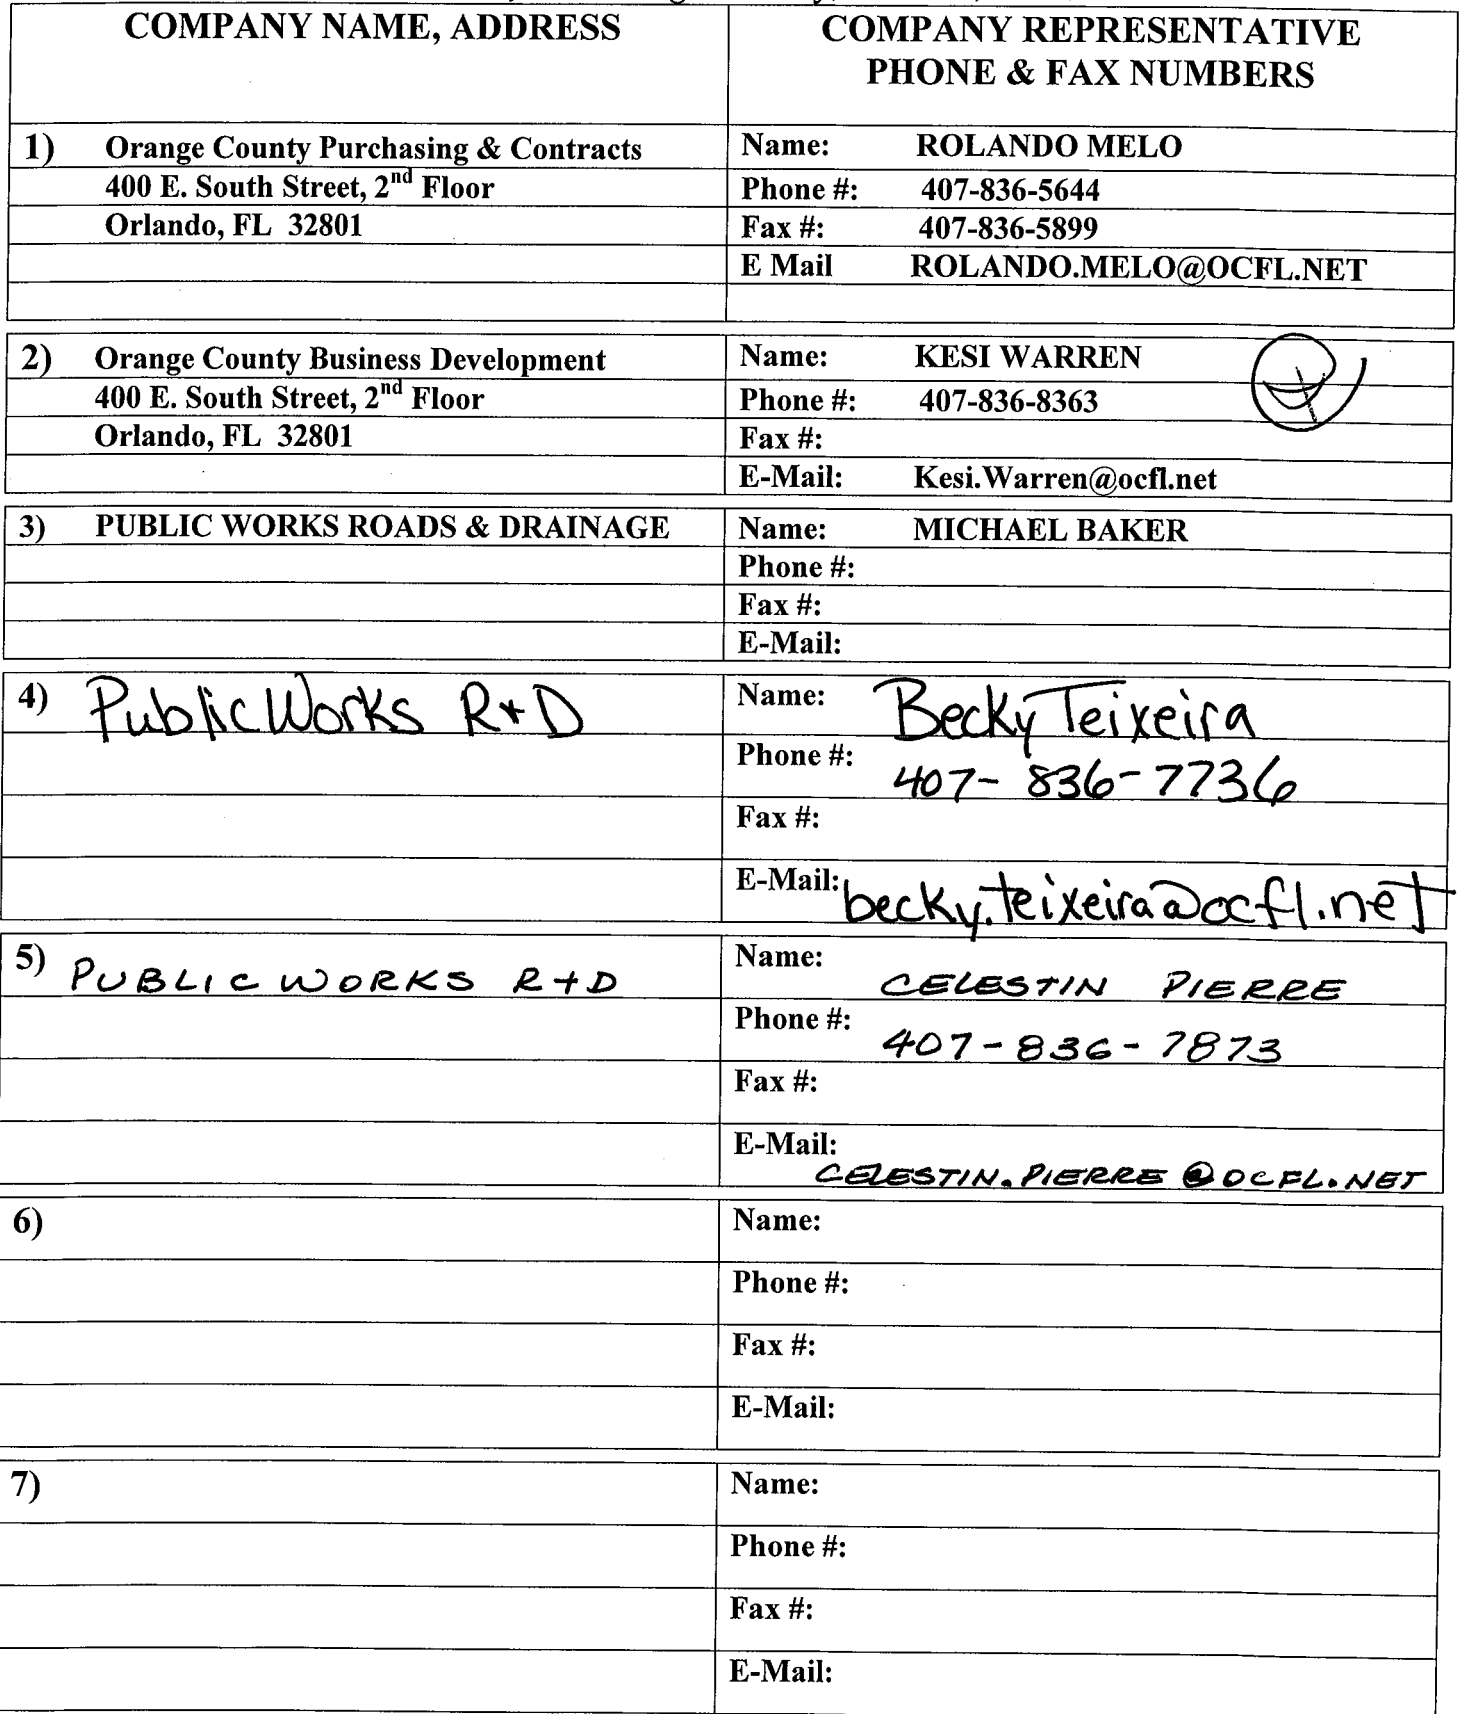 COMPANY NAME, ADDRESS
COMPANY REPRESENTATIVE
PHONE & FAX NUMBERS
1) Orange County Purchasing & Contracts
400 E. South Street, 2nd Floor
Orlando, FL 32801
Name: ROLANDO MELO
Phone #: 407-836-5644
Fax #: 407-836-5899
E Mail ROLANDO.MELO@OCFL.NET
2) Orange County Business Development
400 E. South Street, 2nd Floor
Orlando, FL 32801
Name: KESI WARREN
Phone #: 407-836-8363
Fax #:
E-Mail: Kesi.Warren@ocfl.net
3) PUBLIC WORKS ROADS & DRAINAGE
Name: MICHAEL BAKER
Phone #:
Fax #:
E-Mail:
4) Public Works R+D
Name: Becky Teixeira
Phone #: 407-836-7736
Fax #:
E-Mail: becky.teixeira@ocfl.net
5) PUBLIC WORKS R+D
Name: CELESTIN PIERRE
Phone #: 407-836-7873
Fax #:
E-Mail: CELESTIN.PIERRE@OCFL.NET
6)
Name:
Phone #:
Fax #:
E-Mail:
7)
Name:
Phone #:
Fax #:
E-Mail: